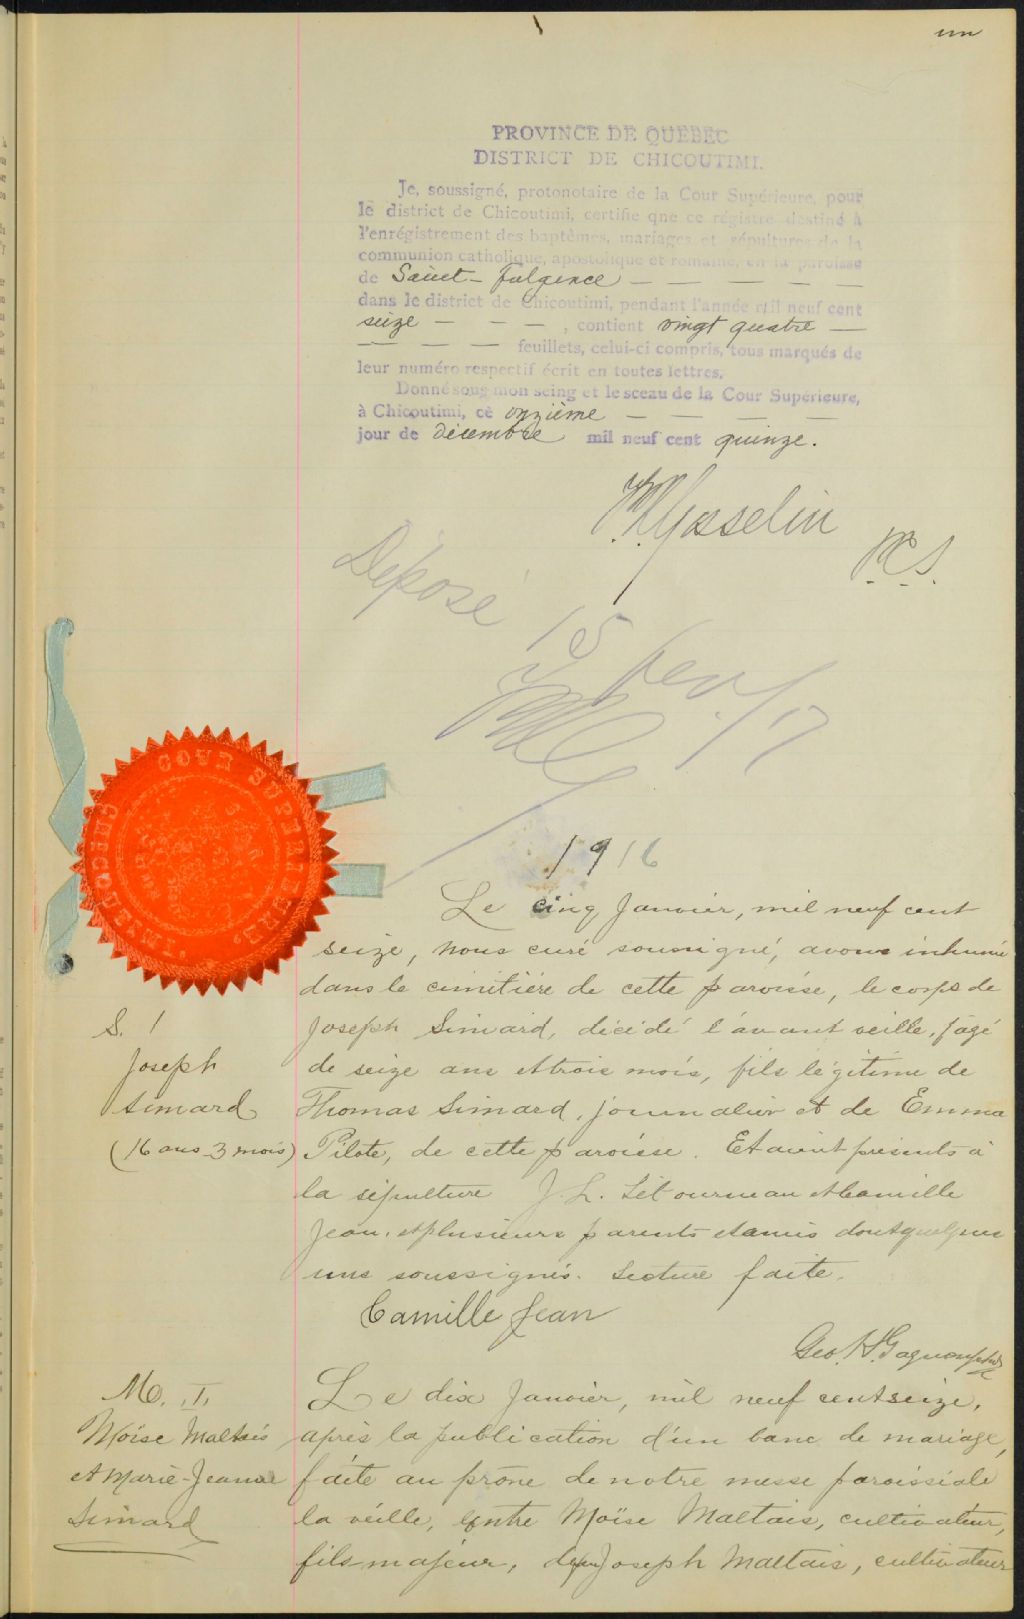 un
PROVINCE DE QUEBEC
DISTRICT DE CHICOUTIMI.
Je, soussigné, protonotaire de la Cour Supérieure, pour
le district de Chicoutimi, certifie que ce régistre destiné à
l'enrégistrement des baptèmes, mariages et sépultures de la
communion catholique, apostolique et romaine, en la paroisse
de Saint-Fulgence — — — — —
dans le district de Chicoutimi, pendant l'année mil neuf cent
seize — — — , contient vingt quatre —
— — — feuillets, celui-ci compris, tous marqués de
leur numéro respectif écrit en toutes lettres.
Donné sous mon seing et le sceau de la Cour Supérieure,
à Chicoutimi, ce onzième — — — —
jour de décembre mil neuf cent quinze.
Gosselin
P.C.S.
Déposé 15 fev/17
COUR SUPERIEURE,
CHICOUTIMI
1916
Le cinq Janvier, mil neuf cent
seize, nous curé soussigné, avons inhumé
dans le cimitière de cette paroisse, le corps de
S. 1
Joseph
Simard
(16 ans 3 mois)
Joseph Simard, décédé l'avant veille, âgé
de seize ans et trois mois, fils légitime de
Thomas Simard, journalier et de Emma
Pilote, de cette paroisse. Etaient présents à
la sépulture J. L. Létourneau et Camille
Jean, et plusieurs parents et amis dont quelques
uns soussignés. Lecture faite.
Camille Jean
Geo. H. Gagnon ptre
M. I.
Moïse Maltais
et Marie-Jeanne
Simard
Le dix Janvier, mil neuf cent seize,
après la publication d'un banc de mariage,
faite au prône de notre messe paroissiale
la veille, entre Moïse Maltais, cultivateur,
fils majeur, de Joseph Maltais, cultivateur